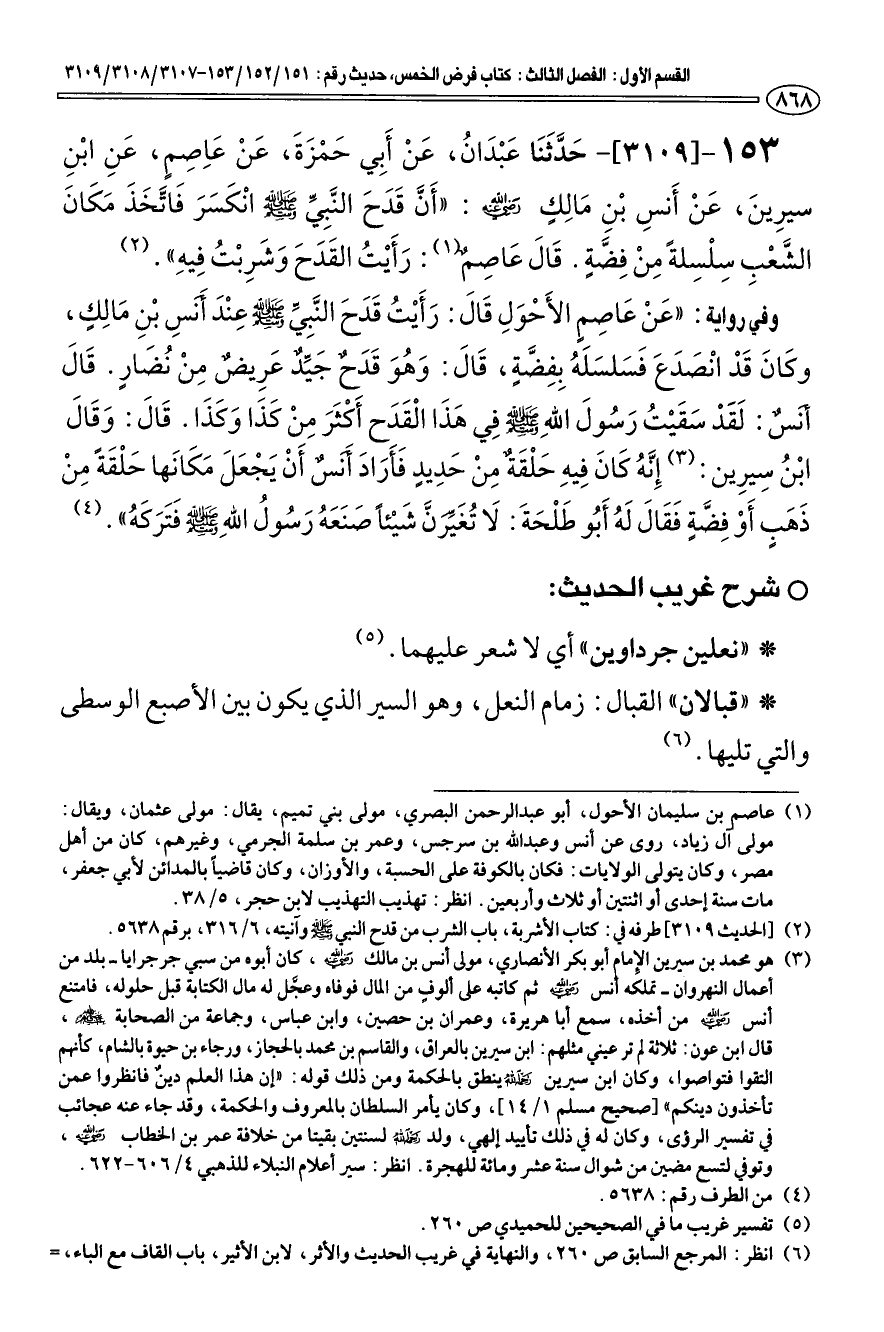 القسم الأول: الفصل الثالث: كتاب فرض الخمس، حديث رقم: ١٥١/١٥٢/١٥٣-٣١٠٧/٣١٠٨/٣١٠٩
٨٦٨
١٥٣-[٣١٠٩]- حَدَّثَنَا عَبْدَانُ، عَنْ أَبِي حَمْزَةَ، عَنْ عَاصِمٍ، عَنِ ابْنِ
سيرينَ، عَنْ أَنسِ بْنِ مَالِكٍ رضي الله عنه : «أَنَّ قَدَحَ النَّبِيِّ ﷺ انْكَسَرَ فَاتَّخَذَ مَكَانَ
الشَّعْبِ سِلْسِلةً مِنْ فِضَّةٍ. قَالَ عَاصِمٌ(١): رَأَيْتُ القَدَحَ وَشَرِبْتُ فِيهِ».(٢)
وفي رواية: «عَنْ عَاصِمٍ الأَحْوَلِ قَالَ: رَأَيْتُ قَدَحَ النَّبِيِّ ﷺ عِنْدَ أَنَسِ بْنِ مَالِكٍ،
وكَانَ قَدْ انْصَدَعَ فَسَلسَلَهُ بِفِضَّةٍ، قَالَ: وَهُوَ قَدَحٌ جَيِّدٌ عَرِيضٌ مِنْ نُضَارٍ. قَالَ
أنَسٌ: لَقَدْ سَقَيْتُ رَسُولَ اللهِ ﷺ فِي هَذَا الْقَدَحِ أَكْثَرَ مِنْ كَذَا وَكَذَا. قَالَ: وَقَالَ
ابْنُ سِيرِين:(٣) إِنَّهُ كَانَ فِيهِ حَلْقَةٌ مِنْ حَدِيدٍ فَأَرَادَ أَنَسٌ أَنْ يَجْعَلَ مَكَانَها حَلْقَةً مِنْ
ذَهَبٍ أَوْ فِضَّةٍ فَقَالَ لَهُ أَبُو طَلْحَةَ: لَا تُغَيِّرَنَّ شَيْئاً صَنَعَهُ رَسُولُ اللهِ ﷺ فَتَرَكَهُ».(٤)
○ شرح غريب الحديث:
* «نعلين جرداوين» أي لا شعر عليهما.(٥)
* «قبالان» القبال: زمام النعل، وهو السير الذي يكون بين الأصبع الوسطى
والتي تليها.(٦)
(١) عاصم بن سليمان الأحول، أبو عبدالرحمن البصري، مولى بني تميم، يقال: مولى عثمان، ويقال:
مولى آل زياد، روى عن أنس وعبدالله بن سرجس، وعمر بن سلمة الجرمي، وغيرهم، كان من أهل
مصر، وكان يتولى الولايات: فكان بالكوفة على الحسبة، والأوزان، وكان قاضياً بالمدائن لأبي جعفر،
مات سنة إحدى أو اثنتين أو ثلاث وأربعين. انظر: تهذيب التهذيب لابن حجر، ٥/ ٣٨.
(٢) [الحديث ٣١٠٩] طرفه في: كتاب الأشربة، باب الشرب من قدح النبي ﷺ وآنيته، ٦/ ٣١٦، برقم ٥٦٣٨.
(٣) هو محمد بن سيرين الإمام أبو بكر الأنصاري، مولى أنس بن مالك رضي الله عنه، كان أبوه من سبي جرجرايا - بلد من
أعمال النهروان - تملكه أنس رضي الله عنه ثم كاتبه على ألوفٍ من المال فوفاه وعجَّل له مال الكتابة قبل حلوله، فامتنع
أنس رضي الله عنه من أخذه، سمع أبا هريرة، وعمران بن حصين، وابن عباس، وجماعة من الصحابة رضي الله عنهم،
قال ابن عون: ثلاثة لم تر عيني مثلهم: ابن سيرين بالعراق، والقاسم بن محمد بالحجاز، ورجاء بن حيوة بالشام، كأنهم
التقوا فتواصوا، وكان ابن سيرين رحمه الله ينطق بالحكمة ومن ذلك قوله: «إن هذا العلم دينٌ فانظروا عمن
تأخذون دينكم» [صحيح مسلم ١/ ١٤]، وكان يأمر السلطان بالمعروف والحكمة، وقد جاء عنه عجائب
في تفسير الرؤى، وكان له في ذلك تأييد إلهي، ولد رحمه الله لسنتين بقيتا من خلافة عمر بن الخطاب رضي الله عنه،
وتوفي لتسع مضين من شوال سنة عشر ومائة للهجرة. انظر: سير أعلام النبلاء للذهبي ٤/ ٦٠٦-٦٢٢.
(٤) من الطرف رقم: ٥٦٣٨.
(٥) تفسير غريب ما في الصحيحين للحميدي ص ٢٦٠.
(٦) انظر: المرجع السابق ص ٢٦٠، والنهاية في غريب الحديث والأثر، لابن الأثير، باب القاف مع الباء، =